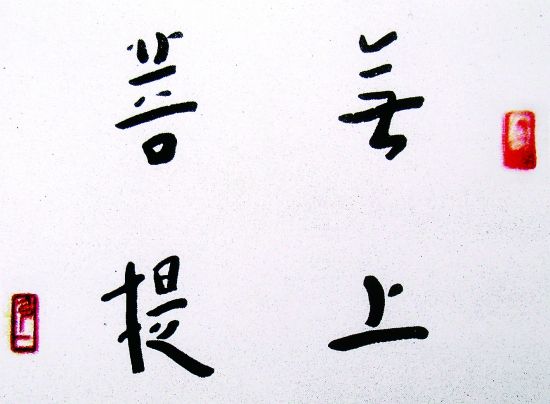 無上
菩提